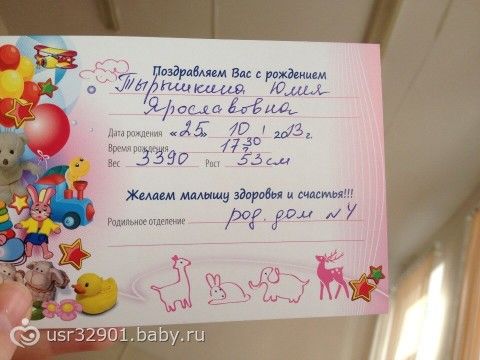 Поздравляем Вас с рождением
Тырышкина Юлия
Ярославовна
Дата рождения «25» 10 2013г.
Время рождения 17 30
Вес 3390 Рост 53см
Желаем малышу здоровья и счастья!!!
Родильное отделение род. дом №4
usr32901.baby.ru